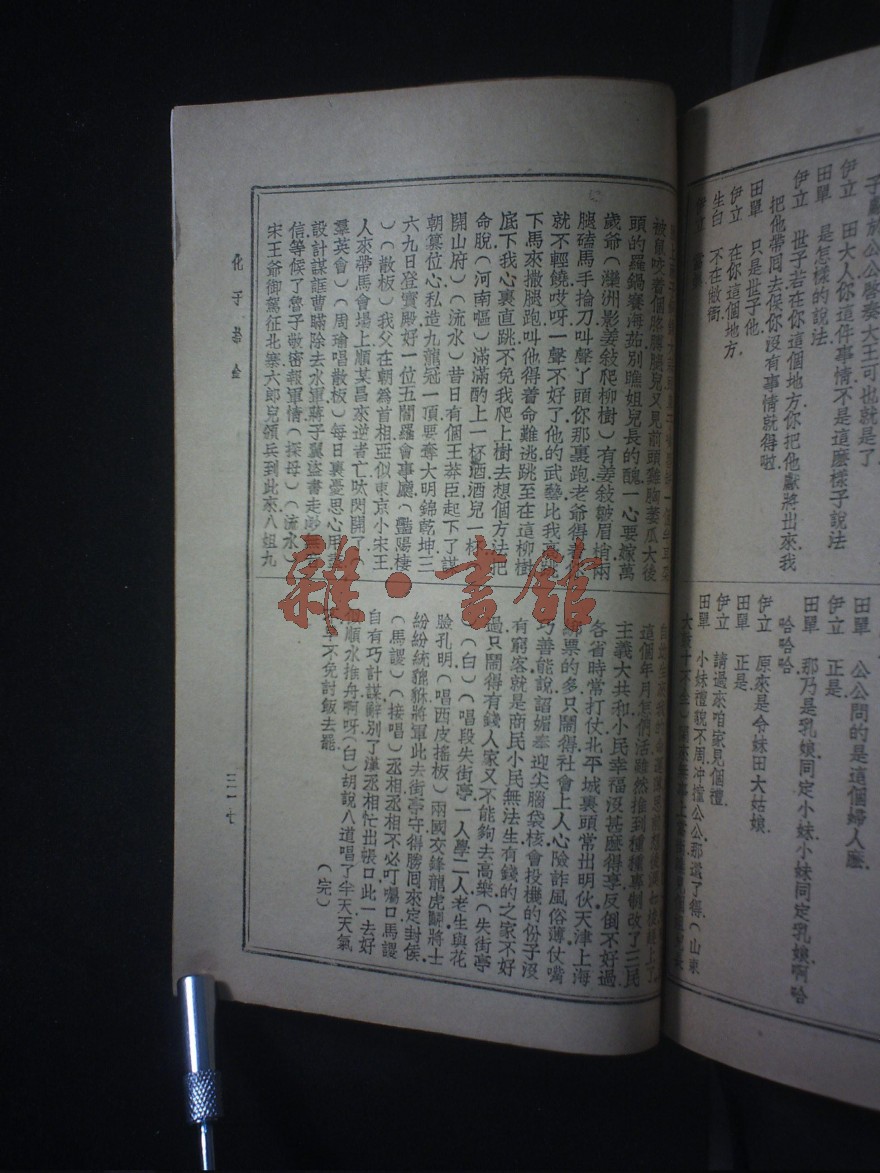 子獻於公公啓奏大王可也就是了
伊立 田大人你這件事情不是這麽樣子說法
田單 是怎樣的說法
伊立 世子若在你這個地方你把他獻將出來我
把他帶同去保你沒有事情就得啦
田單 只是世子他
伊立 在你這個地方
生白 不在敝衙
伊立
田單 公公問的是這個婦人麽
伊立 正是
田單 那乃是乳娘同定小妹小妹同定乳娘啊哈
哈哈哈
伊立 原來是令妹田大姑娘
田單 正是
伊立 請過來咱家見個禮
田單 小妹禮貌不周沖撞公公那還了得(山東
被鼠咬着個肐膊腿兒又見前頭雞胸蔞瓜大後
頭的羅鍋賽海茹別瞧姐兒長的醜一心要嫁萬
歲爺(灤洲影姜敍爬柳樹)有姜敍皺眉梢兩
腿磕馬手掄刀叫聲了頭你那裏跑老爺得着你
就不輕饒哎呀一聲不好了他的武藝比我高跳
下馬來撒腿跑叫他得着命難逃跳至在這柳樹
底下我心裏直跳不免我爬上樹去想個方法把
命脫(河南嘔)滿滿酌上一杯酒酒兒一杯
開山府)(流水)昔日有個王莽臣起下了謀
朝纂位心私造九龍冠一頂要奪大明錦乾坤三
六九日登寶殿好一位五閻羅會事廳(豔陽樓
)(散板)我父在朝爲首相亞似東京小宋王
人來帶馬會場上順某昌來逆者亡吠閃開了
羣英會)(周瑜唱散板)每日裏憂思心用
設計謀誆曹瞞除去水軍蔣子翼盜書走
信等候了魯子敬密報軍情(探母)(流水)
宋王爺御駕征北寨六郎兒領兵到此來八姐九
這個年月怎們活雖然推到種種專制改了三民
主義大共和小民幸福沒甚麽得享反倒不好過
各省時常打仗北平城裏頭常出明伙天津上海
綁票的多只鬧得社會上人心險詐風俗薄仗嘴
巧善能說諂媚奉迎尖腦袋核會投機的份子沒
有窮客就是商民小民無法生有錢的之家不好
過只鬧得有錢人家又不能夠去高樂(失街亭
)(白)(唱段失街亭一人學二人老生與花
臉孔明(唱西皮搖板)兩國交鋒龍虎鬬將士
紛紛統貔貅將軍此去街亭守得勝同來定封侯
(馬謖)(接唱)丞相丞相不必叮囑口馬謖
自有巧計謀辭別了漢丞相忙出帳口此一去好
順水推舟啊呀(白)胡說八道唱了半天天氣
不免討飯去罷
(完)
化子拾金
三一七
雜·書館